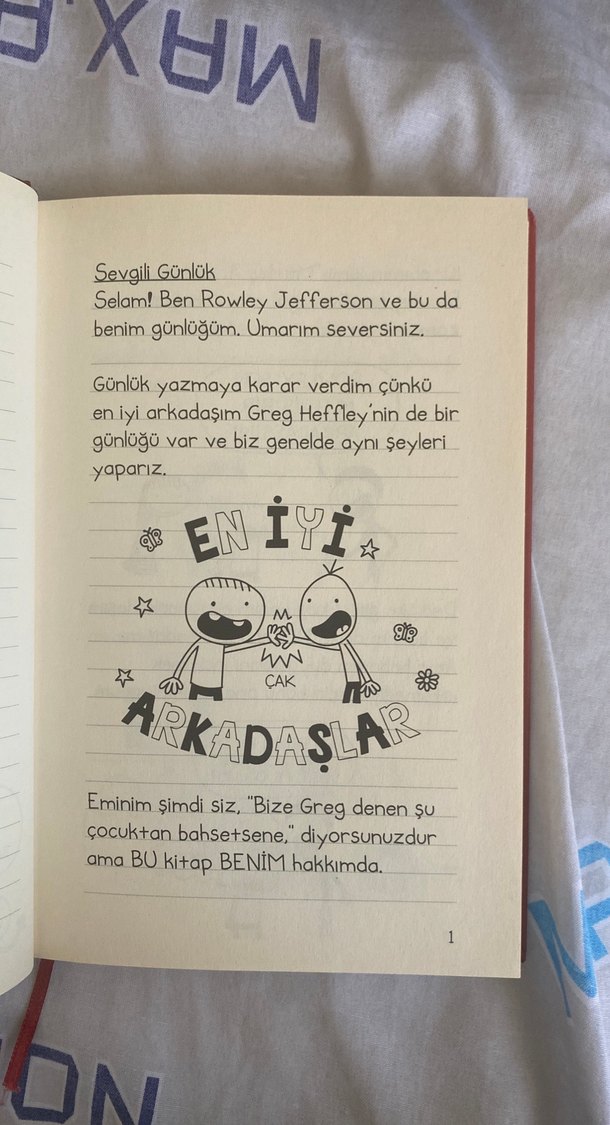 MAX.A
Sevgili Günlük
Selam! Ben Rowley Jefferson ve bu da
benim günlüğüm. Umarım seversiniz.
Günlük yazmaya karar verdim çünkü
en iyi arkadaşım Greg Heffley'nin de bir
günlüğü var ve biz genelde aynı şeyleri
yaparız.
EN İYİ
ÇAK
ARKADAŞLAR
Eminim şimdi siz, "Bize Greg denen şu
çocuktan bahsetsene," diyorsunuzdur
ama BU kitap BENİM hakkımda.
1